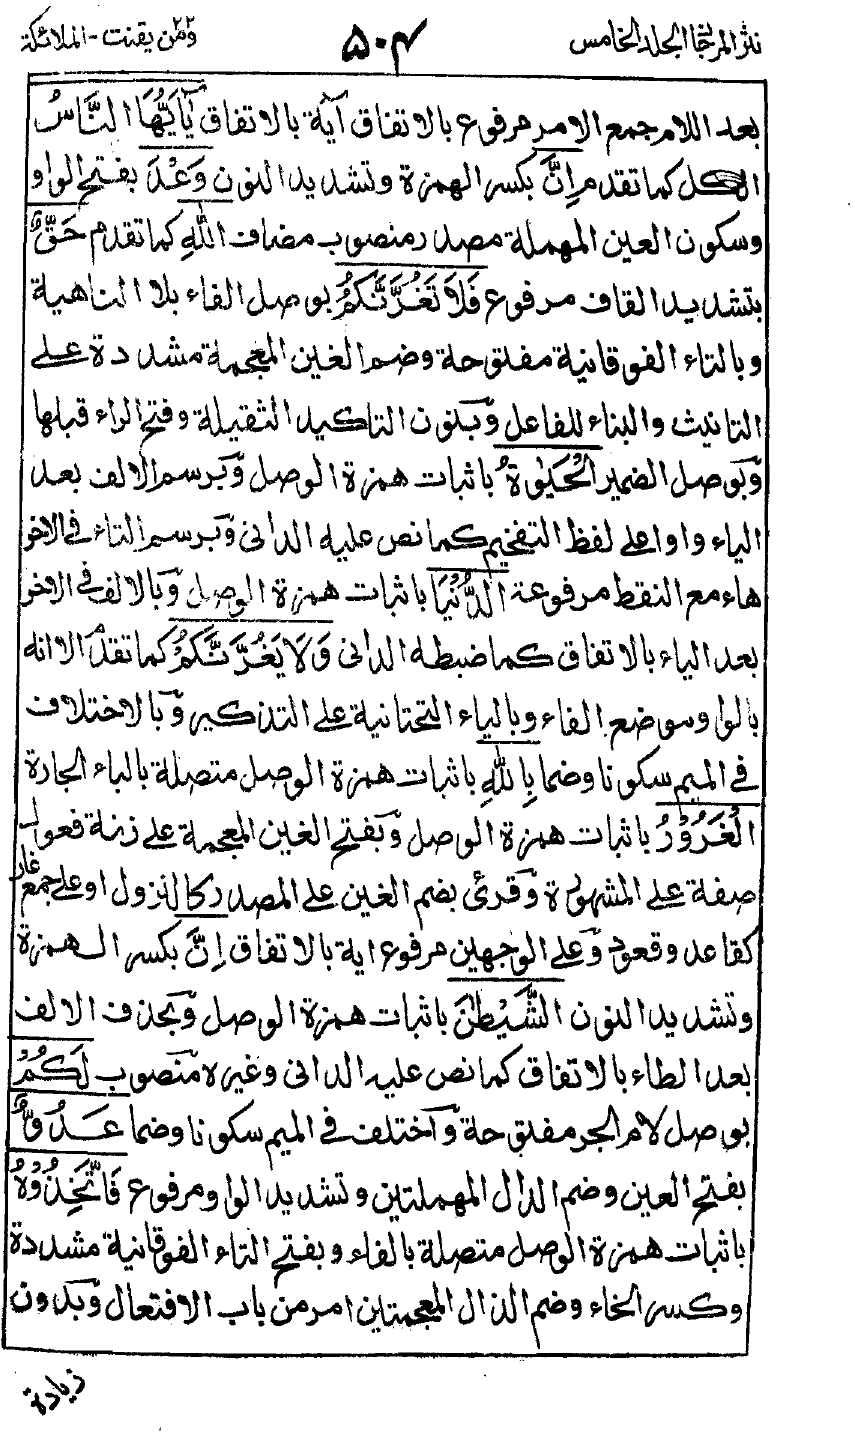 نثر المرجان الجلد الخامس
۵۰۴
ومن يقنت ۲۲ - الملائكة
بعد اللام جمع الامر مرفوع بالاتفاق آية بالاتفاق يٰٓاَيُّهَا النَّاسُ
الكل كما تقدم اِنَّ بكسر الهمزة وتشديد النون وَعْدَ بفتح الواو
وسكون العين المهملة مصدر منصوب مضاف اللّٰهِ كما تقدم حَقٌّ
بتشديد القاف مرفوع فَلَا تَغُرَّنَّكُمُ بوصل الفاء بلا الناهية
وبالتاء الفوقانية مفتوحة وضم الغين المعجمة مشددة على
التانيث والبناء للفاعل وَبنون التاكيد الثقيلة وفتح الراء قبلها
وَبوصل الضمير الْحَيٰوةُ باثبات همزة الوصل وَبرسم الالف بعد
الياء واوا على لفظ التفخيم كما نص عليه الدانى وَبرسم التاء فى الاخر
هاء مع النقط مرفوعة الدُّنْيَا باثبات همزة الوصل وَبالالف فى الاخر
بعد الياء بالاتفاق كما ضبطه الدانى وَلَا يَغُرَّنَّكُمْ كما تقدم الا انه
بالواو موضع الفاء وبالياء التحتانية على التذكير وَبالاختلاف
فى الميم سكونا وضما بِاللّٰهِ باثبات همزة الوصل متصلة بالباء الجارة
الْغَرُوْرُ باثبات همزة الوصل وَبفتح الغين المعجمة على زنة فعول
صفة على المشهورة وَقرئ بضم الغين على المصدر كالنزول او على جمع غار
كقاعد وقعود وَعلى الوجهين مرفوع اية بالاتفاق اِنَّ بكسر الهمزة
وتشديد النون الشَّيْطٰنَ باثبات همزة الوصل وَبحذف الالف
بعد الطاء بالاتفاق كما نص عليه الدانى وغيره منصوب لَكُمْ
بوصل لام الجر مفتوحة وَاختلف فى الميم سكونا وضما عَدُوٌّ
بفتح العين وضم الدال المهملتين وتشديد الواو مرفوع فَاتَّخِذُوْهُ
باثبات همزة الوصل متصلة بالفاء وبفتح التاء الفوقانية مشددة
وكسر الخاء وضم الذال المعجمتين امر من باب الافتعال وَبدون
زيادة